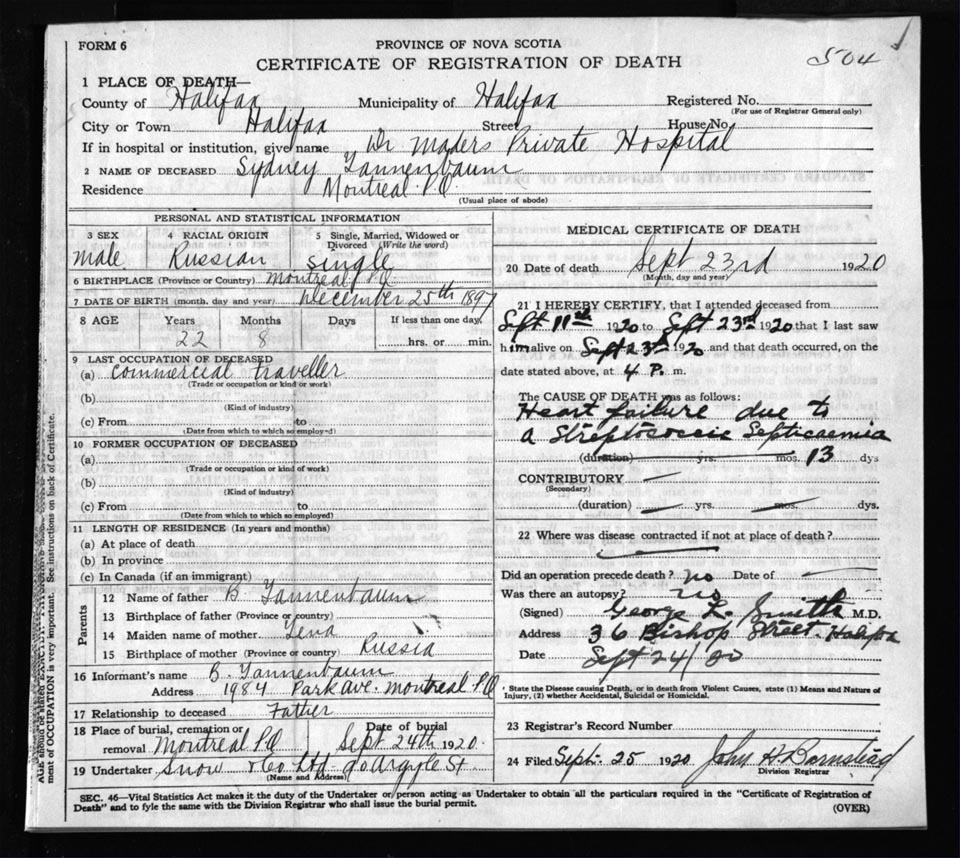 FORM 6
PROVINCE OF NOVA SCOTIA
504
CERTIFICATE OF REGISTRATION OF DEATH
1 PLACE OF DEATH—
County of Halifax Municipality of Halifax Registered No.
(For use of Registrar General only)
City or Town Halifax Street House No.
If in hospital or institution, give name Dr Maders Private Hospital
2 NAME OF DECEASED Sydney Tannenbaum
Residence Montreal P.Q.
(Usual place of abode)
PERSONAL AND STATISTICAL INFORMATION
3 SEX 4 RACIAL ORIGIN 5 Single, Married, Widowed or Divorced (Write the word)
male Russian Single
6 BIRTHPLACE (Province or Country) Montreal P.Q.
7 DATE OF BIRTH (month, day and year) December 25th 1897
8 AGE Years Months Days If less than one day,
22 8 hrs. or min.
9 LAST OCCUPATION OF DECEASED
(a) Commercial traveller
(Trade or occupation or kind of work)
(b)
(Kind of industry)
(c) From to
(Date from which to which so employed)
10 FORMER OCCUPATION OF DECEASED
(a)
(Trade or occupation or kind of work)
(b)
(Kind of industry)
(c) From to
(Date from which to which so employed)
11 LENGTH OF RESIDENCE (In years and months)
(a) At place of death
(b) In province
(c) In Canada (if an immigrant)
Parents
12 Name of father B. Tannenbaum
13 Birthplace of father (Province or country)
14 Maiden name of mother Lena
15 Birthplace of mother (Province or country) Russia
16 Informant's name B. Tannenbaum
Address 1984 Park Ave. Montreal P.Q
17 Relationship to deceased Father
18 Place of burial, cremation or Date of burial
removal Montreal P.Q Sept 24th 1920.
19 Undertaker Snow & Co Ltd Argyle St.
(Name and Address)
MEDICAL CERTIFICATE OF DEATH
20 Date of death Sept 23rd 1920
(Month, day and year)
21 I HEREBY CERTIFY, that I attended deceased from
Sept 11th 1920 to Sept 23rd 1920 that I last saw
him alive on Sept 23rd 1920 and that death occurred, on the
date stated above, at 4 P. m.
The CAUSE OF DEATH was as follows:
Heart failure due to
a Streptococcic Septicaemia
(duration) yrs. mos. 13 dys
CONTRIBUTORY
(Secondary)
(duration) yrs. mos. dys.
22 Where was disease contracted if not at place of death?
Did an operation precede death? no Date of
Was there an autopsy? no
(Signed) George L. Smith M.D.
Address 36 Bishop Street. Halifax
Date Sept 24/20
* State the Disease causing Death, or in death from Violent Causes, state (1) Means and Nature of
Injury, (2) whether Accidental, Suicidal or Homicidal.
23 Registrar's Record Number
24 Filed Sept. 25 1920 John H Barnstead
Division Registrar
SEC. 46—Vital Statistics Act makes it the duty of the Undertaker or person acting as Undertaker to obtain all the particulars required in the "Certificate of Registration of
Death" and to fyle the same with the Division Registrar who shall issue the burial permit.
(OVER)
ment of OCCUPATION is very important. See instructions on back of Certificate.